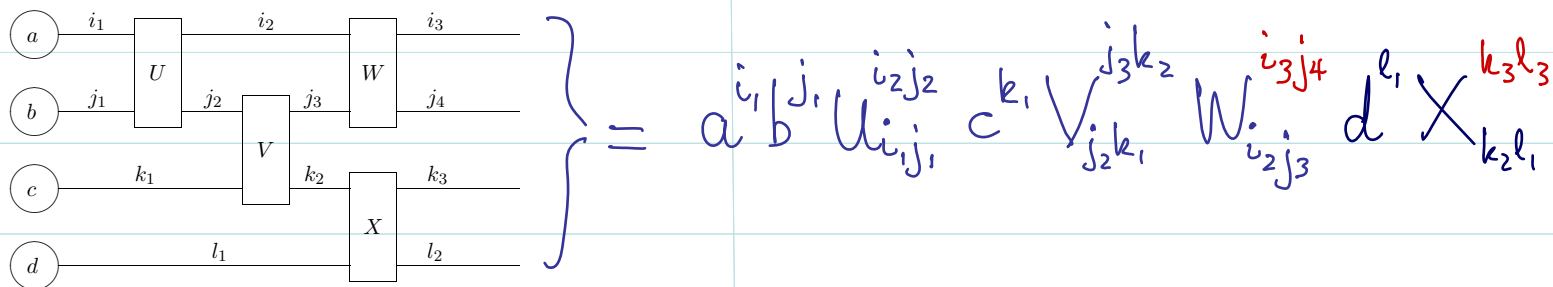 a i₁ i₂ i₃
U W
b j₁ j₂ j₃ j₄
V
c k₁ k₂ k₃
X
d l₁ l₂
= a^{i₁} b^{j₁} U_{i₁j₁}^{i₂j₂} c^{k₁} V_{j₂k₁}^{j₃k₂} W_{i₂j₃}^{i₃j₄} d^{l₁} X_{k₂l₁}^{k₃l₃}